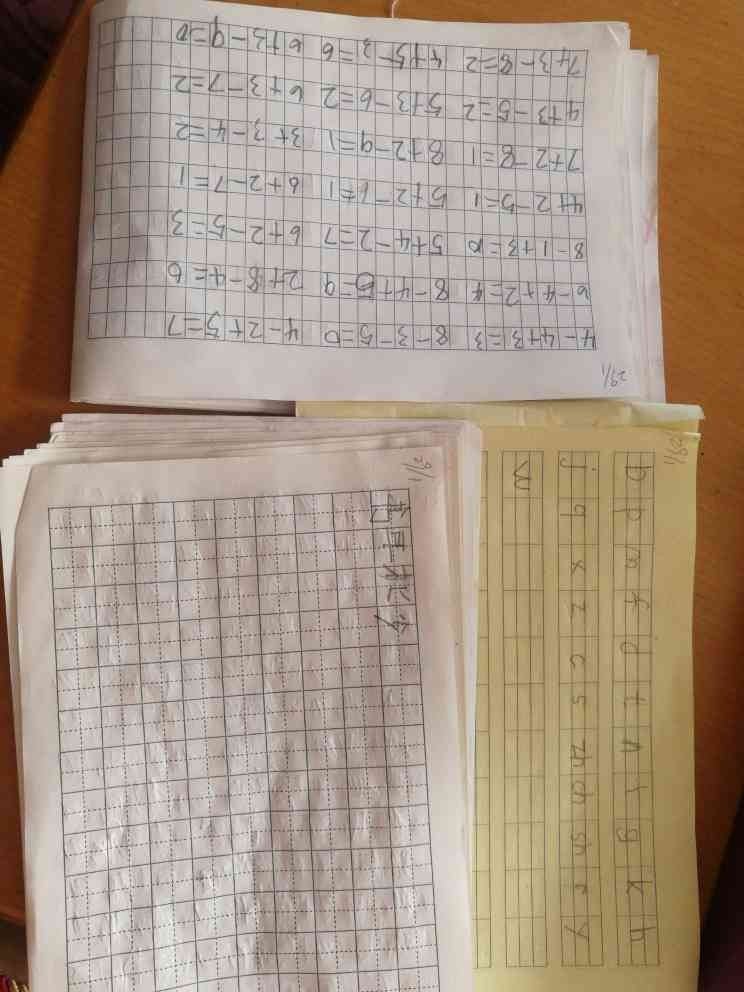 29/1
4-4+3=3 8-3-5=0 4-2+5=7
6-4+2=4 8-4+5=9 2+8-4=6
8-1+3=10 5+4-2=7 6+2-5=3
4+2-5=1 5+2-6=1 6+2-7=1
7+2-8=1 8+2-9=1 3+3-4=2
4+3-5=2 5+3-6=2 6+3-7=2
7+3-8=2 4+5-3=6 6+3-9=0
29/1
29/1
b p m f d t n l g k h
j q x z c s zh ch sh r y
w